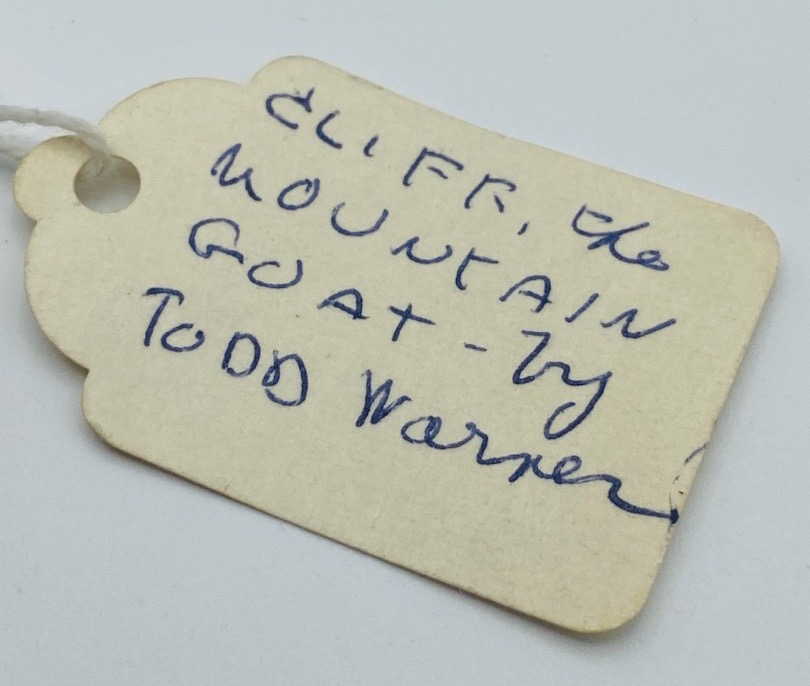 CLIFF, the
MOUNTAIN
GOAT - by
TODD Warner